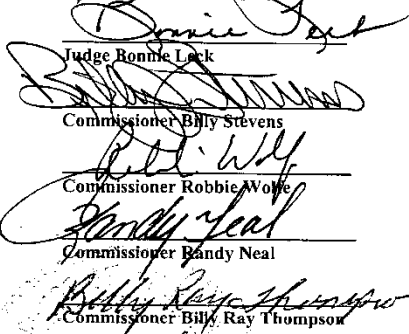 Bonnie Leck
Judge Bonnie Leck
Billy Stevens
Commissioner Billy Stevens
Robbie Wolfe
Commissioner Robbie Wolfe
Randy Neal
Commissioner Randy Neal
Billy Ray Thompson
Commissioner Billy Ray Thompson